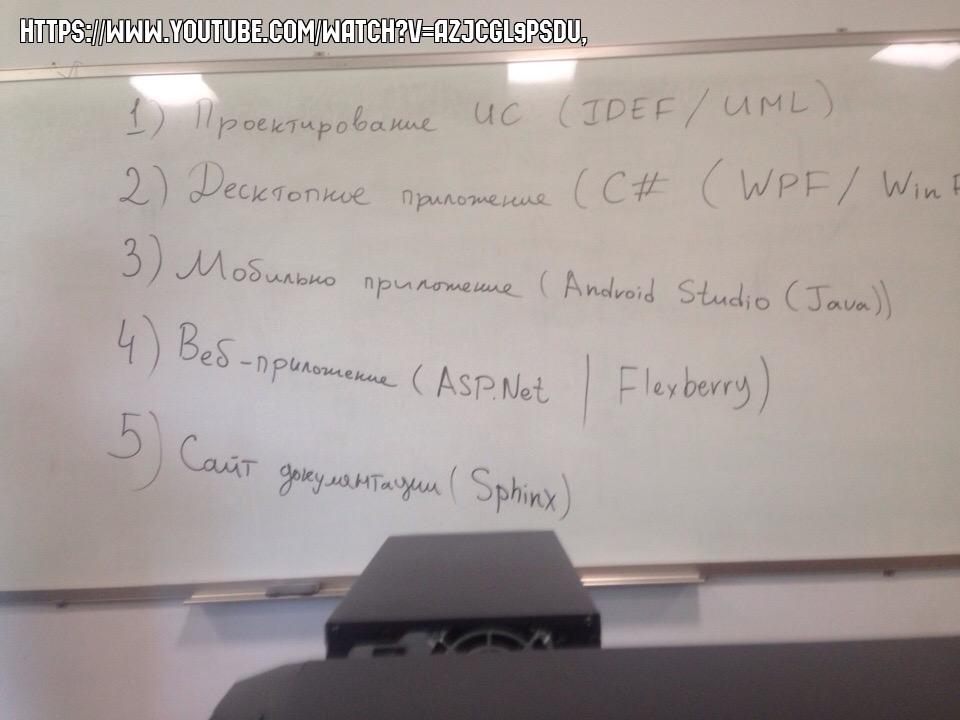 HTTPS://WWW.YOUTUBE.COM/WATCH?V=AZJCGL9PSDU,
1) Проектирование ИС (IDEF/UML)
2) Десктопное приложение (C# (WPF/ Win F
3) Мобильно приложение (Android Studio (Java))
4) Веб-приложение (ASP.Net | Flexberry)
5) Сайт документации (Sphinx)